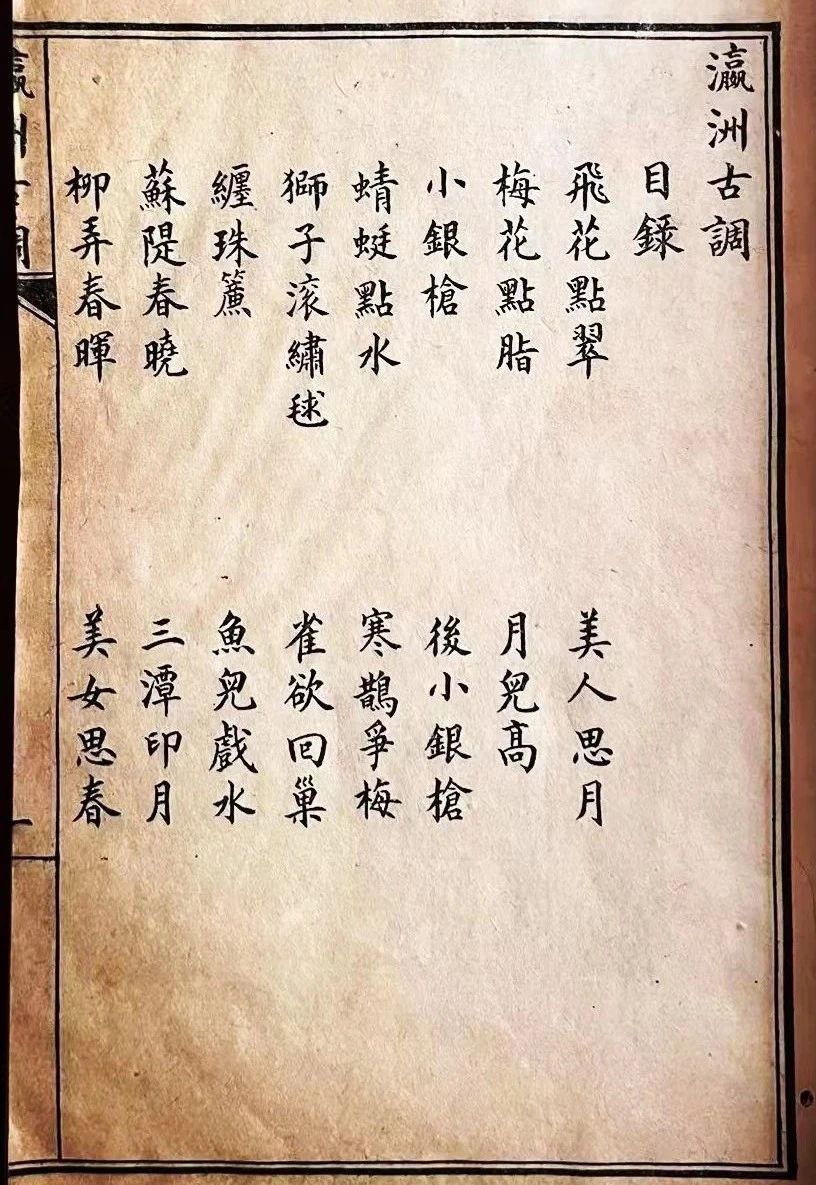 瀛洲古調
目錄
飛花點翠
美人思月
梅花點脂
月兒高
小銀槍
後小銀槍
蜻蜓點水
寒鵲爭梅
獅子滾繡毬
雀欲回巢
纏珠簾
魚兒戲水
蘇隄春曉
三潭印月
柳弄春暉
美女思春
瀛洲古調
一